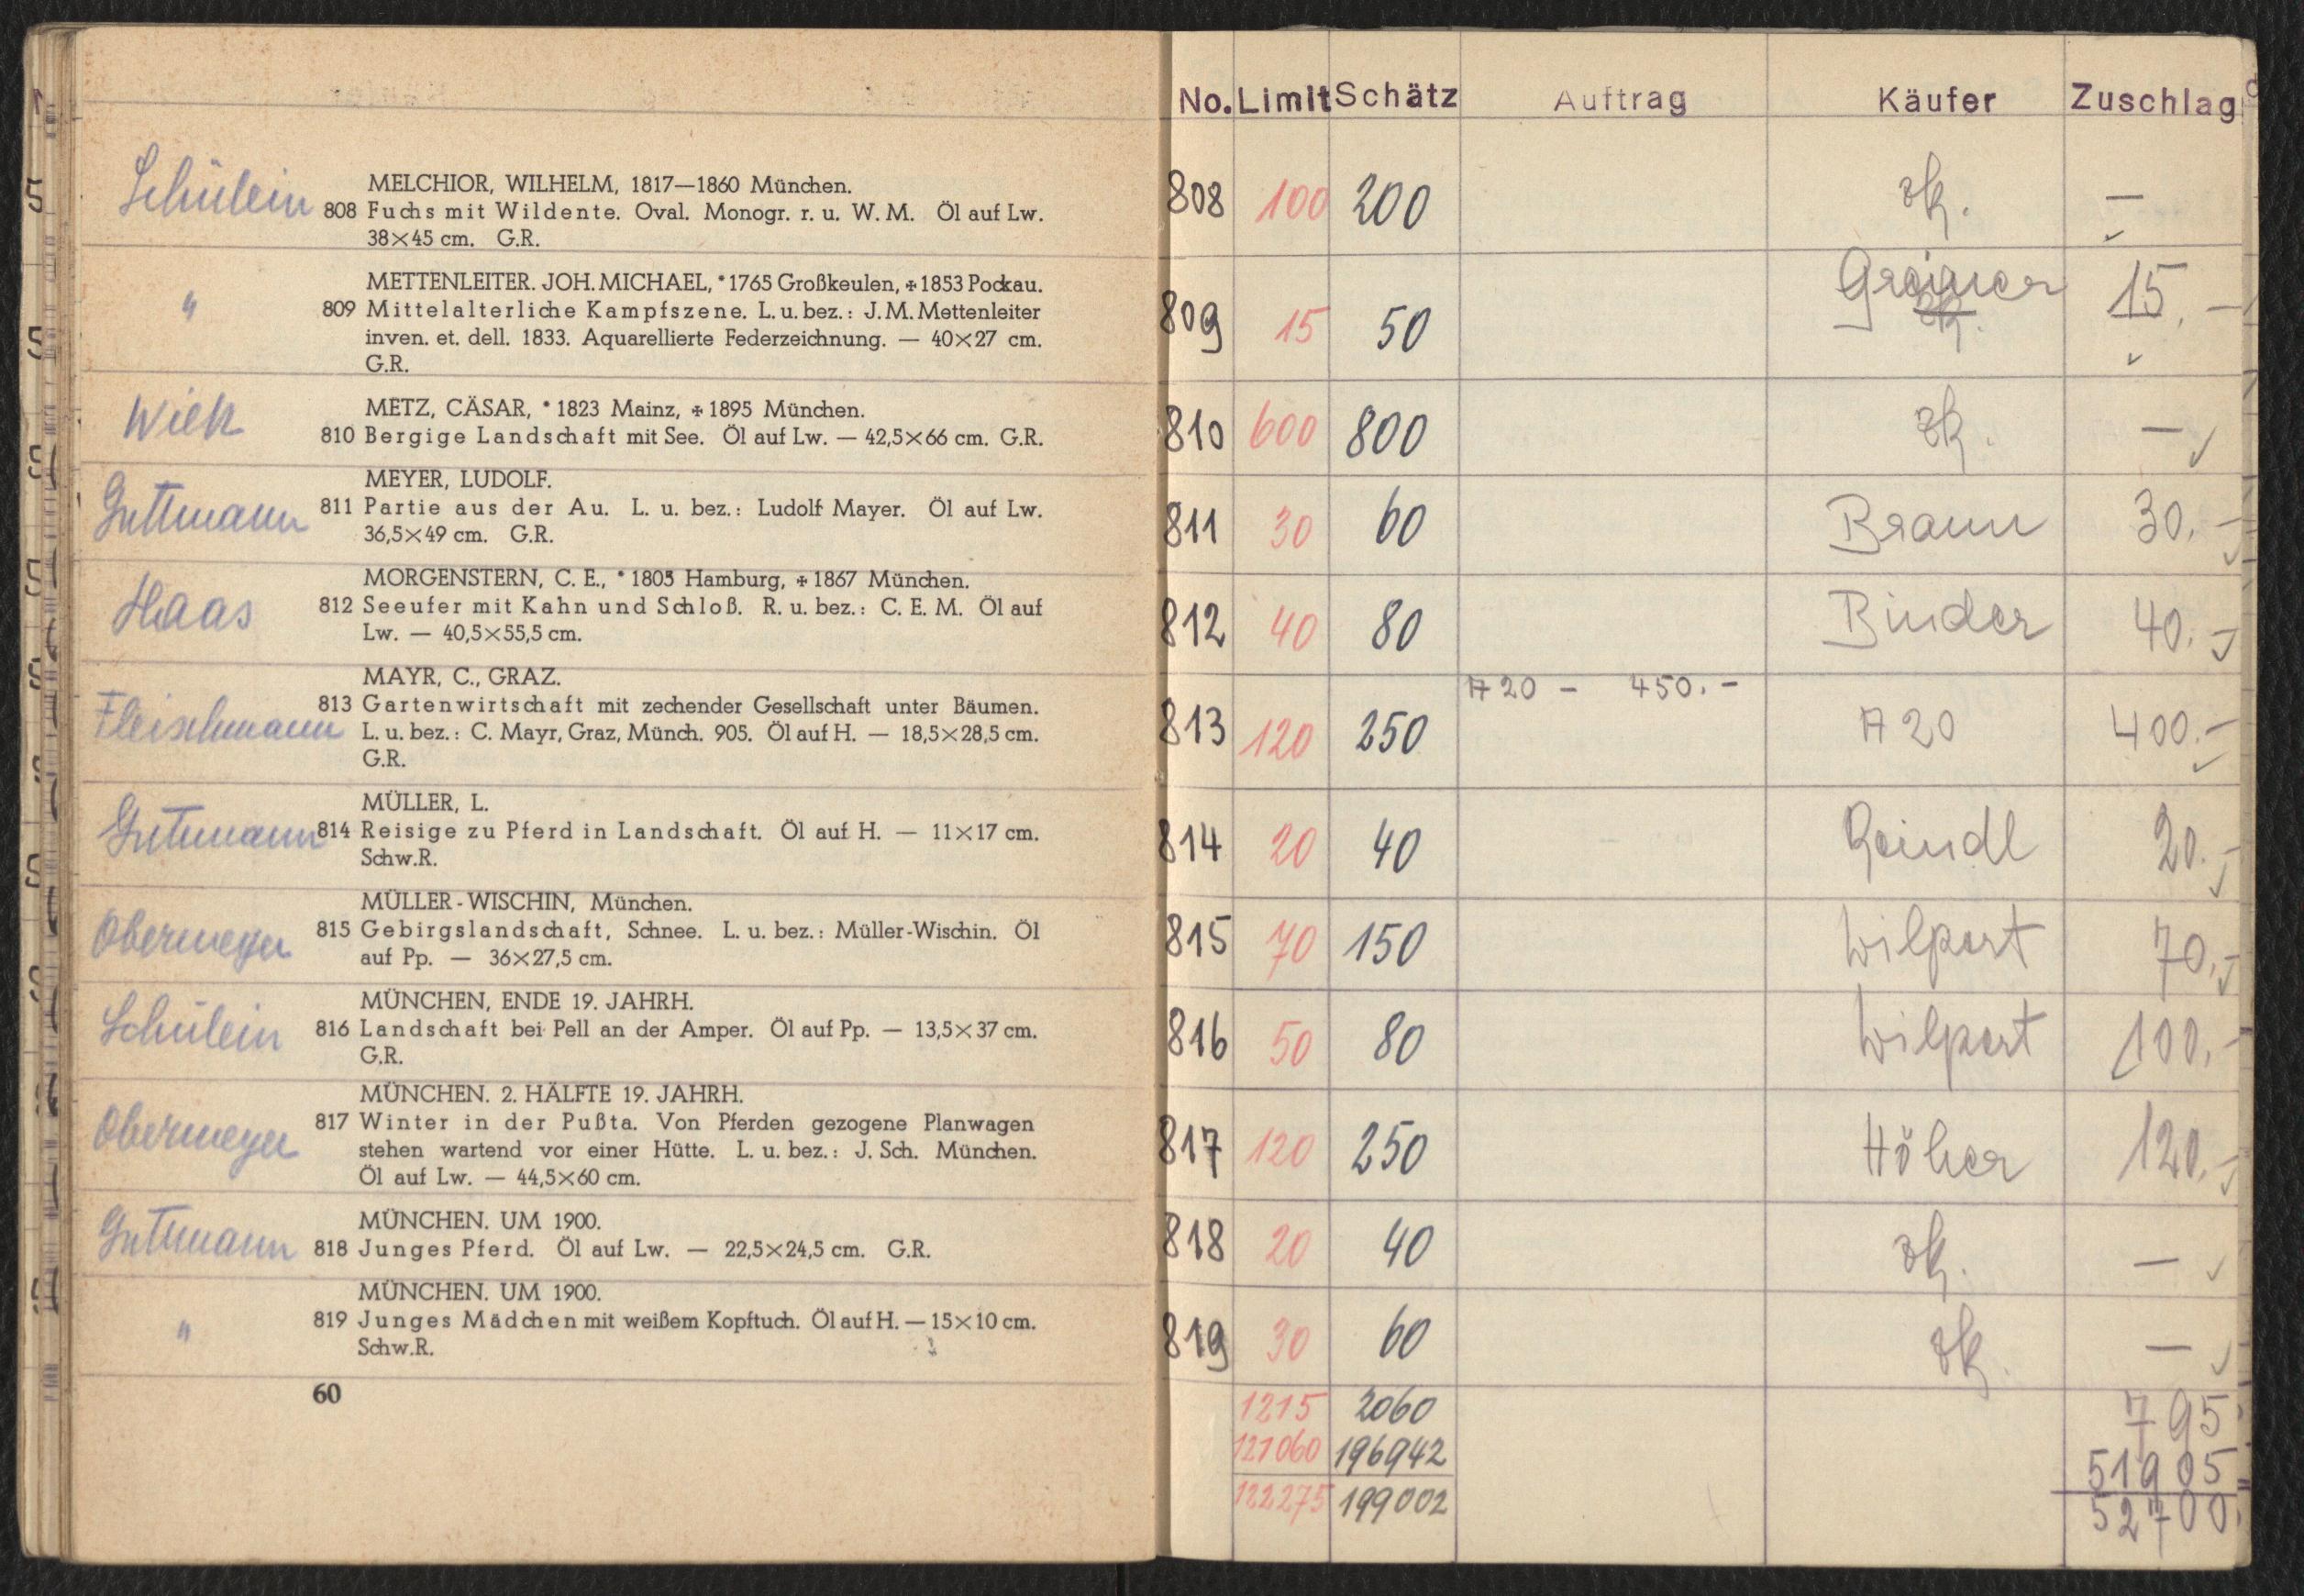 Schülein
MELCHIOR, WILHELM, 1817—1860 München.
808 Fuchs mit Wildente. Oval. Monogr. r. u. W. M. Öl auf Lw.
38×45 cm. G.R.
"
METTENLEITER. JOH. MICHAEL, *1765 Großkeulen, ✠1853 Pockau.
809 Mittelalterliche Kampfszene. L. u. bez.: J. M. Mettenleiter
inven. et. dell. 1833. Aquarellierte Federzeichnung. — 40×27 cm.
G.R.
Wiek
METZ, CÄSAR, *1823 Mainz, ✠1895 München.
810 Bergige Landschaft mit See. Öl auf Lw. — 42,5×66 cm. G.R.
Guttmann
MEYER, LUDOLF.
811 Partie aus der Au. L. u. bez.: Ludolf Mayer. Öl auf Lw.
36,5×49 cm. G.R.
Haas
MORGENSTERN, C. E., *1805 Hamburg, ✠1867 München.
812 Seeufer mit Kahn und Schloß. R. u. bez.: C. E. M. Öl auf
Lw. — 40,5×55,5 cm.
Fleischmann
MAYR, C., GRAZ.
813 Gartenwirtschaft mit zechender Gesellschaft unter Bäumen.
L. u. bez.: C. Mayr, Graz, Münch. 905. Öl auf H. — 18,5×28,5 cm.
G.R.
Guttmann
MÜLLER, L.
814 Reisige zu Pferd in Landschaft. Öl auf H. — 11×17 cm.
Schw.R.
Obermeyer
MÜLLER-WISCHIN, München.
815 Gebirgslandschaft, Schnee. L. u. bez.: Müller-Wischin. Öl
auf Pp. — 36×27,5 cm.
Schülein
MÜNCHEN, ENDE 19. JAHRH.
816 Landschaft bei Pell an der Amper. Öl auf Pp. — 13,5×37 cm.
G.R.
Obermeyer
MÜNCHEN. 2. HÄLFTE 19. JAHRH.
817 Winter in der Pußta. Von Pferden gezogene Planwagen
stehen wartend vor einer Hütte. L. u. bez.: J. Sch. München.
Öl auf Lw. — 44,5×60 cm.
Guttmann
MÜNCHEN. UM 1900.
818 Junges Pferd. Öl auf Lw. — 22,5×24,5 cm. G.R.
"
MÜNCHEN. UM 1900.
819 Junges Mädchen mit weißem Kopftuch. Öl auf H. — 15×10 cm.
Schw.R.
60
No. Limit Schätz Auftrag Käufer Zuschlag
808 100 200 zk. —
809 15 50 Greiner zk. 15.—
810 600 800 zk. —
811 30 60 Braun 30.—
812 40 80 Binder 40.—
A 20 — 450.—
813 120 250 A 20 400.—
814 20 40 Reindl 20.—
815 70 150 Wilpert 70.—
816 50 80 Wilpert 100.—
817 120 250 Höher 120.—
818 20 40 zk. —
819 30 60 zk. —
1215 2060 795
121060 196942 51905
122275 199002 52700